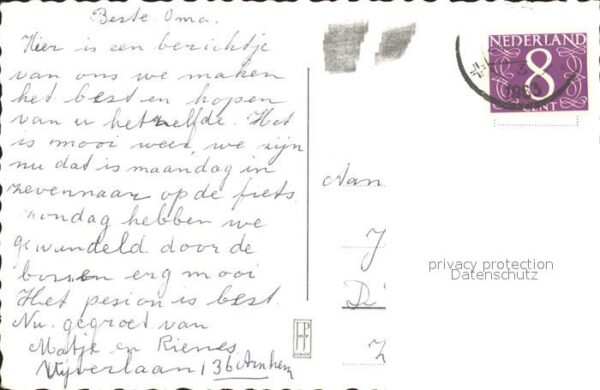 Beste Oma.
Hier is een berichtje
van ons we maken
het best en hopen
van u hetzelfde. Het
is mooi weer, we zijn
nu dat is maandag in
zevennaar op de fiets.
zondag hebben we
gewandeld door de
bossen erg mooi
Het pesion is best.
Nu. gegroet van
Matje en Rienes
Vijverlaan 136 Arnhem
NEDERLAND
8
CENT
1963
Aan
J
De
Z
privacy protection
Datenschutz
JP